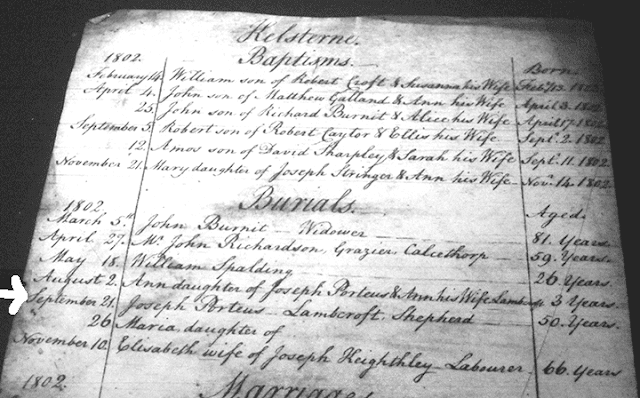 Kelsterne.
Baptisms.
1802. Born.
February 14. William son of Robert Croft & Susanna his Wife Feby 13. 1802
April 4. John son of Matthew Galland & Ann his Wife April 3. 1802
25. John son of Richard Burnit & Alice his Wife April 17. 1802
September 5. Robert son of Robert Caytor & Ellis his Wife Sept. 2. 1802
12. Amos son of David Sharpley & Sarah his Wife Sept. 11. 1802
November 21. Mary daughter of Joseph Stringer & Ann his Wife Nov. 14. 1802
Burials.
1802. Aged.
March 5th John Burnit — Widower 81. Years
April 27. Mr. John Richardson, Grazier, Calcethorp 59. Years
May 18. William Spalding 26 Years
August 2. Ann daughter of Joseph Porteus & Ann his Wife 3 Years.
September 21. Joseph Porteus — Lambcroft. Shepherd 50. Years.
26 Maria daughter of
November 10. Elisabeth wife of Joseph Heighthley — Labourer 66. Years
1802. Marriages